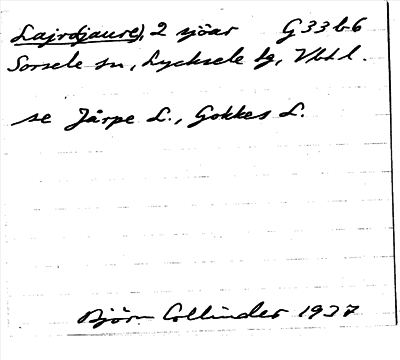 Lajrdjaure), 2 sjöar G 33 b-6
Sorsele sn, Lycksele lg, Vbtl.
se Järpe L., Gokkes L.
Björn Collinder 1937